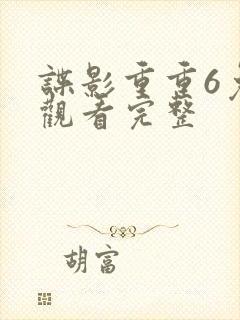 諜影重重6
觀看完整
胡富